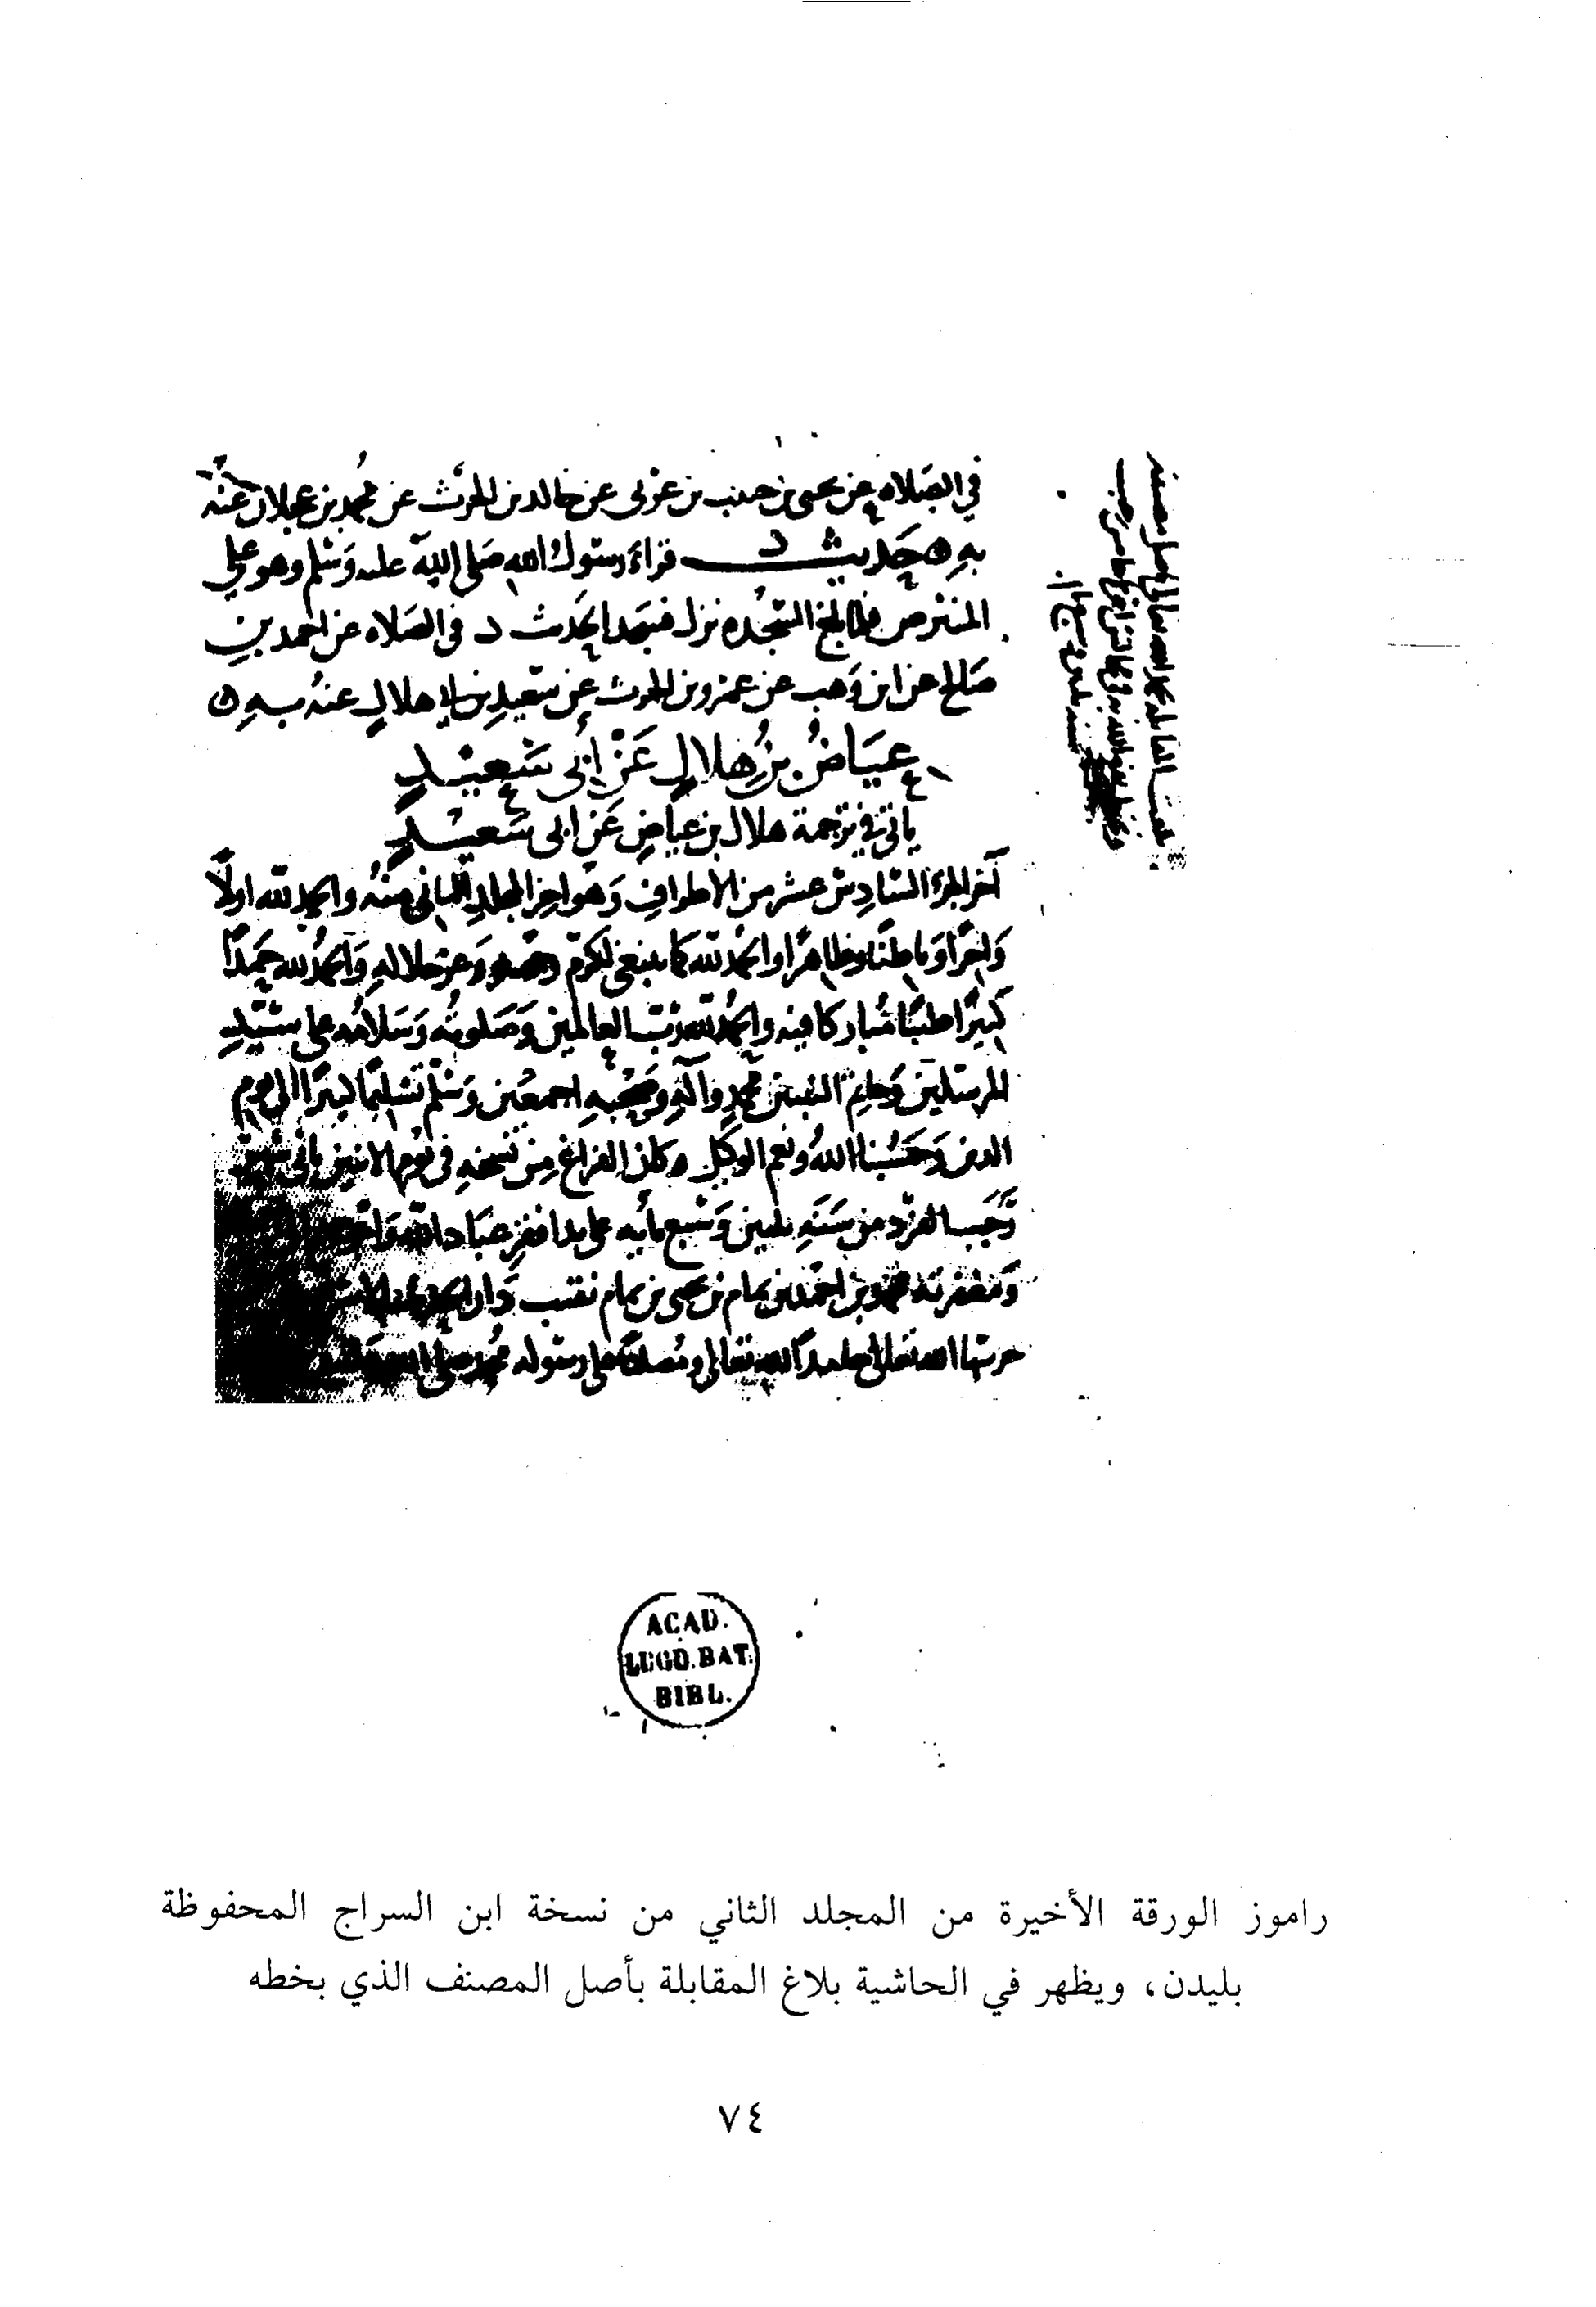 في الصلاة عن يحيى بن حبيب بن عربي عن خالد بن الحرث عن محمد بن عجلان عنه
به حديث د قراء رسول الله صلى الله عليه وسلم وهو على
المنبر ص فلما بلغ السجدة نزل فسجد الحديث د في الصلاه عن احمد بن
صالح عن ابن وهب عن عمرو بن الحرث عن سعيد بن ابي هلال عنه به
عياض بن هلال عن أبي سعيد
ياتي في ترجمة هلال بن عياض عن ابي سعيد
آخر الجزء السادس عشر من الاطراف وهو اخر المجلد الثاني منه والحمد لله اولًا
واخرًا وباطنًا وظاهرًا والحمد لله كما ينبغي لكرم وجهه وعز جلاله والحمد لله حمدًا
كثيرًا طيبًا مباركا فيه والحمد لله رب العالمين وصلوته وسلامه على سيد
المرسلين وخاتم النبيين محمد وآله وصحبه اجمعين وسلم تسليمًا كثيرًا الى يوم
الدين وحسبنا الله ونعم الوكيل وكان الفراغ من نسخه في يوم الاثنين ثاني شهر
رجب الفرد من سنة ثلثين وسبع مايه على يد افقر عباد الله
ومغفرته محمد بن احمد بن تمام بن يحيى بن تمام نقيب دار الحديث
حرسها الله تعالى حامدًا لله تعالى ومصليًا على رسوله محمد صلى الله
ACAD.
LUGD. BAT.
BIBL.
راموز الورقة الأخيرة من المجلد الثاني من نسخة ابن السراج المحفوظة
بليدن، ويظهر في الحاشية بلاغ المقابلة بأصل المصنف الذي بخطه
٧٤